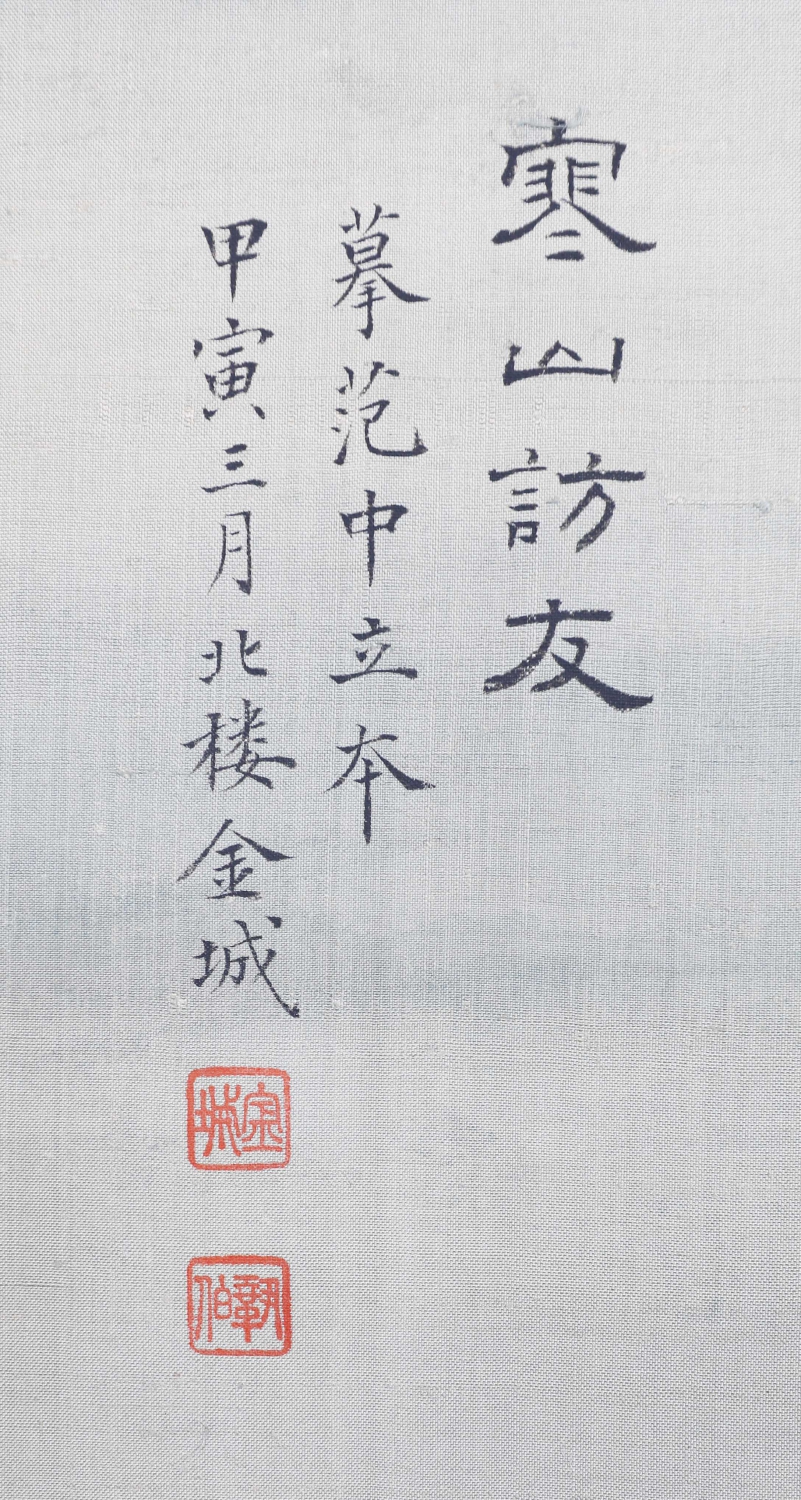 寒山訪友
摹范中立本
甲寅三月北楼金城
金城